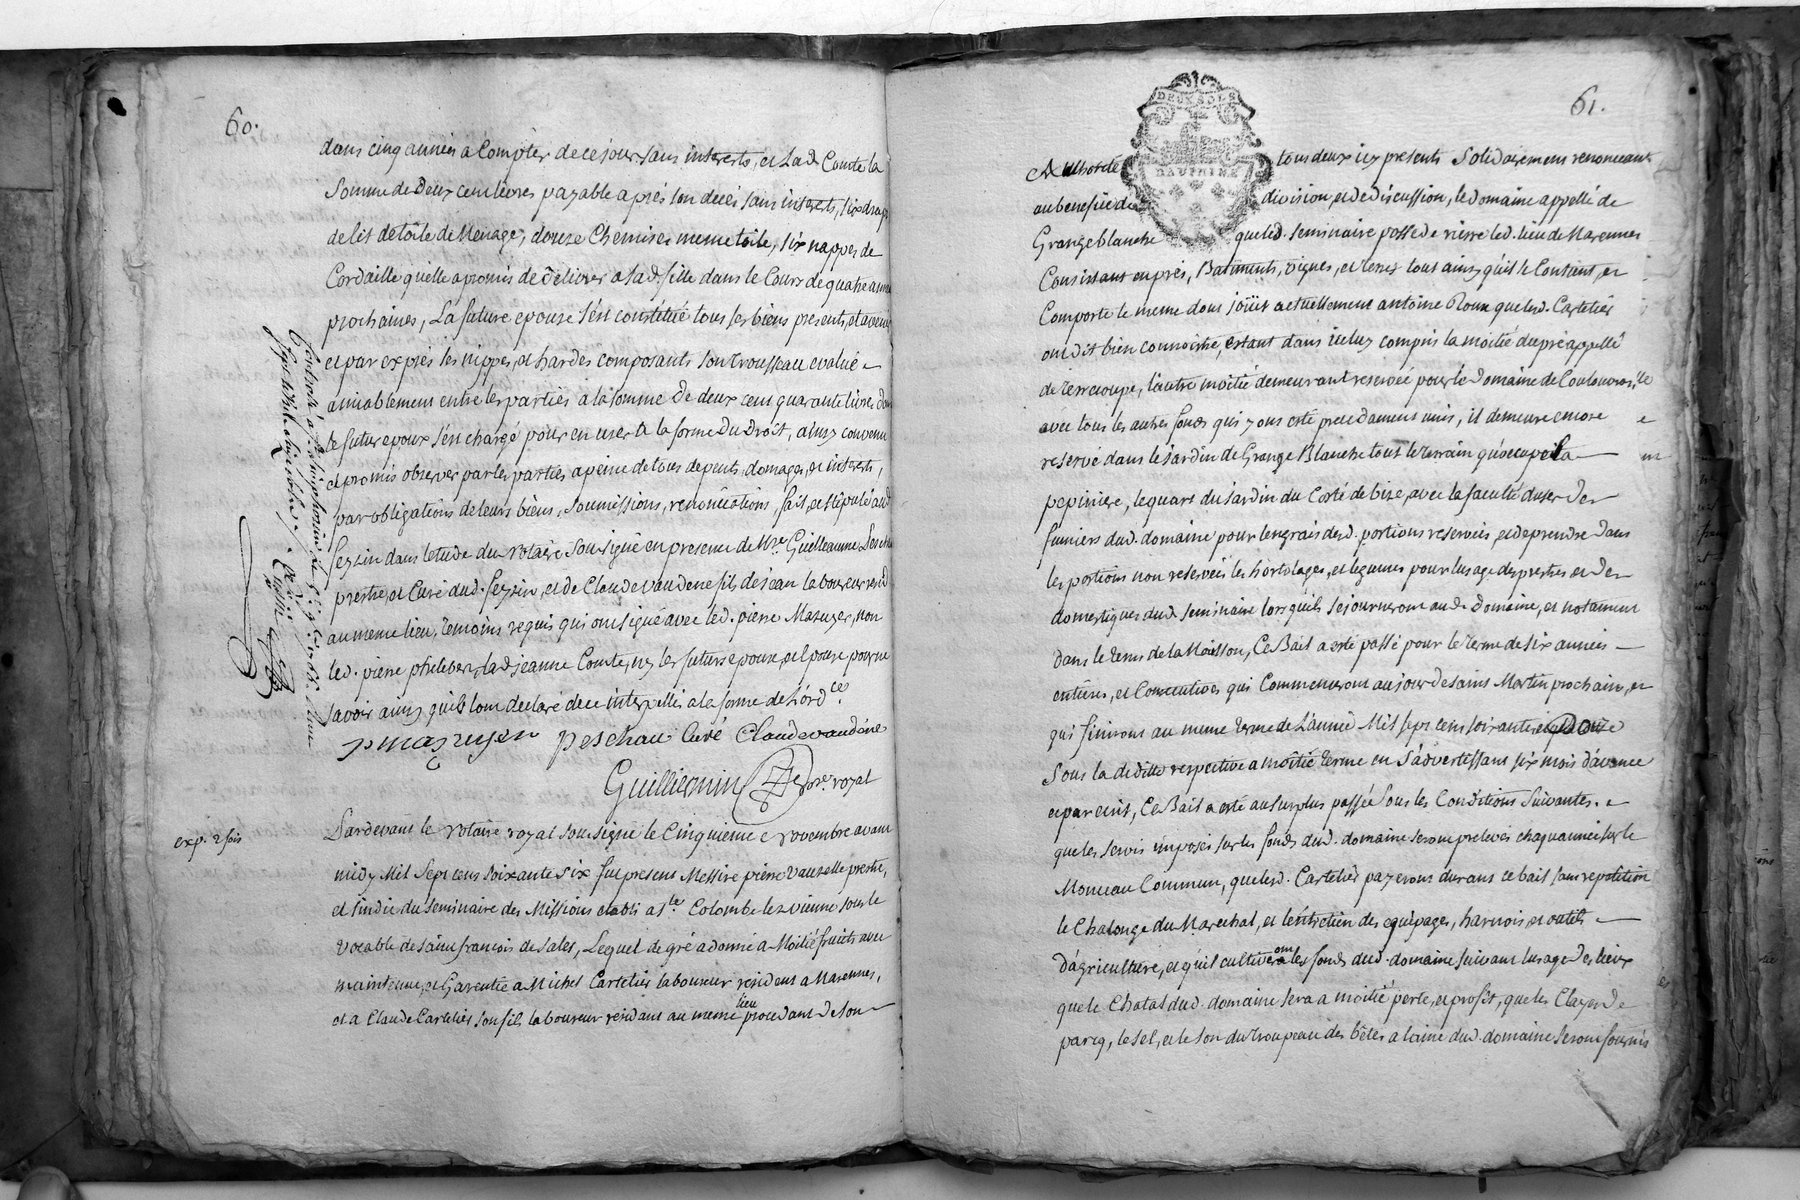 60.
dans cinq années a compter de ce jour sans interests, et Lad. Comte la
somme de deux cens livres payable aprés son decés sans interests, six draps
de lit de toile de Menage, douze Chemises meme toile, six nappes de
Cordaille qu'elle a promis de delivrer a sad. fille dans le Cours de quatre années
prochaines, La future epouse s'est constitué tous ses biens presents, et avenir
et par exprés les nippes, et hardes composants son trousseau evalué
amiablement entre les parties à la somme de deux cent quarante livres dont
le futur epoux s'est chargé pour en user a la forme du Droit, ainsy convenu
et promis observer par les parties a peine de tous depents, domages, et interests,
par obligations de leurs biens, soumissions, renonciations, fait, et stipulé aud.
feyzin dans letude du notaire soussigné en presence de Mre. Guilleaume Peschau
prestre, et Curé dud. feyzin, et de Claude vaudene fils de jean laboureur resid.
au meme lieu, temoins requis qui ont signé avec led. pierre Mazuyer, non
led. pierre phileber, lad. jeanne Comte, ny les futurs epoux, et epouse pour ne
savoir ainsy qu'ils l'ont declaré de ce interpellés a la forme de L'ord.ce
p mazuyer peschau Curé Claude vaudéne
Guilliermin no.re royal
exp. 2 fois
Pardevant le notaire royal soussigné le Cinquieme novembre avant
midy Mil Sept cens soixante six fut present Messire pierre vauzelle prestre,
et sindic du seminaire des Missions etabli a s.te Colombe lez vienne sous le
vocable de saint françois de sales, Lequel de gré a donné a Moitié fruits avec
maintenue, et Garentie a Michel Cartelier laboureur resident a Marennes,
et a Claude Cartelier son fils laboureur residant au meme lieu procedant de son
61.
DEUX SOLS
DAUPHINÉ
Authorité tous deux icy presents solidairement renonceant
au benefice de division, et de discussion, le domaine appellé de
Grange blanche que led. seminaire possede riere led. lieu de Marennes
Consistant en prés, Batiments, vignes, et terres tout ainsy qu'il se Contient, et
Comporte le meme dont joüit actuellement antoine Roux que lesd. Cartelier
ont dit bien connoitre, estant dans iceluy compris la moitié du pré appellé
de terrecoupe, l'autre moitié demeurant reservée pour le Domaine de
avec tous les autres fonds qui y ont esté precedament unis, il demeure encore
reservé dans le jardin de Grange Blanche tout le terrain qu'occupe la
pepiniere, le quart du jardin du Costé de bize, avec la faculté d'user des
fumiers dud. domaine pour l'engrais desd. portions reservées, et de prendre dans
les portions non reservées les hortolages, et legumes pour lusage des prestres et des
domestiques dud. seminaire lorsqu'ils sejourneront aud. Domaine, et notament
dans le tems de la Moisson, Ce Bail a esté passé pour le terme de six années
entieres, et Consecutives qui Commenceront au jour de saint Martin prochain, et
qui finiront au meme terme de L'année Mil sept cens soixante et douze
sous la deditte respective a moitié terme en s'advertissant six mois d'avance
et par ecrit, Ce Bail a esté au surplus passé sous les Conditions suivantes.
que les servis imposés sur les fonds dud. domaine seront prelevés chaque année sur le
Monceau Commun, que lesd. Cartelier payeront durant ce bail sans repetition
le Chalonge du Marechal, et l'entretien des equipages, harnois, et outils
d'agriculture, et qu'il cultiveront les fonds dud. domaine suivant lusage des lieux
que le Chatal dud. domaine sera a moitié perte, et profit, que les Clayes de
parcq, le sel, et le son du troupeau des bêtes a laine dud. domaine seront fournis